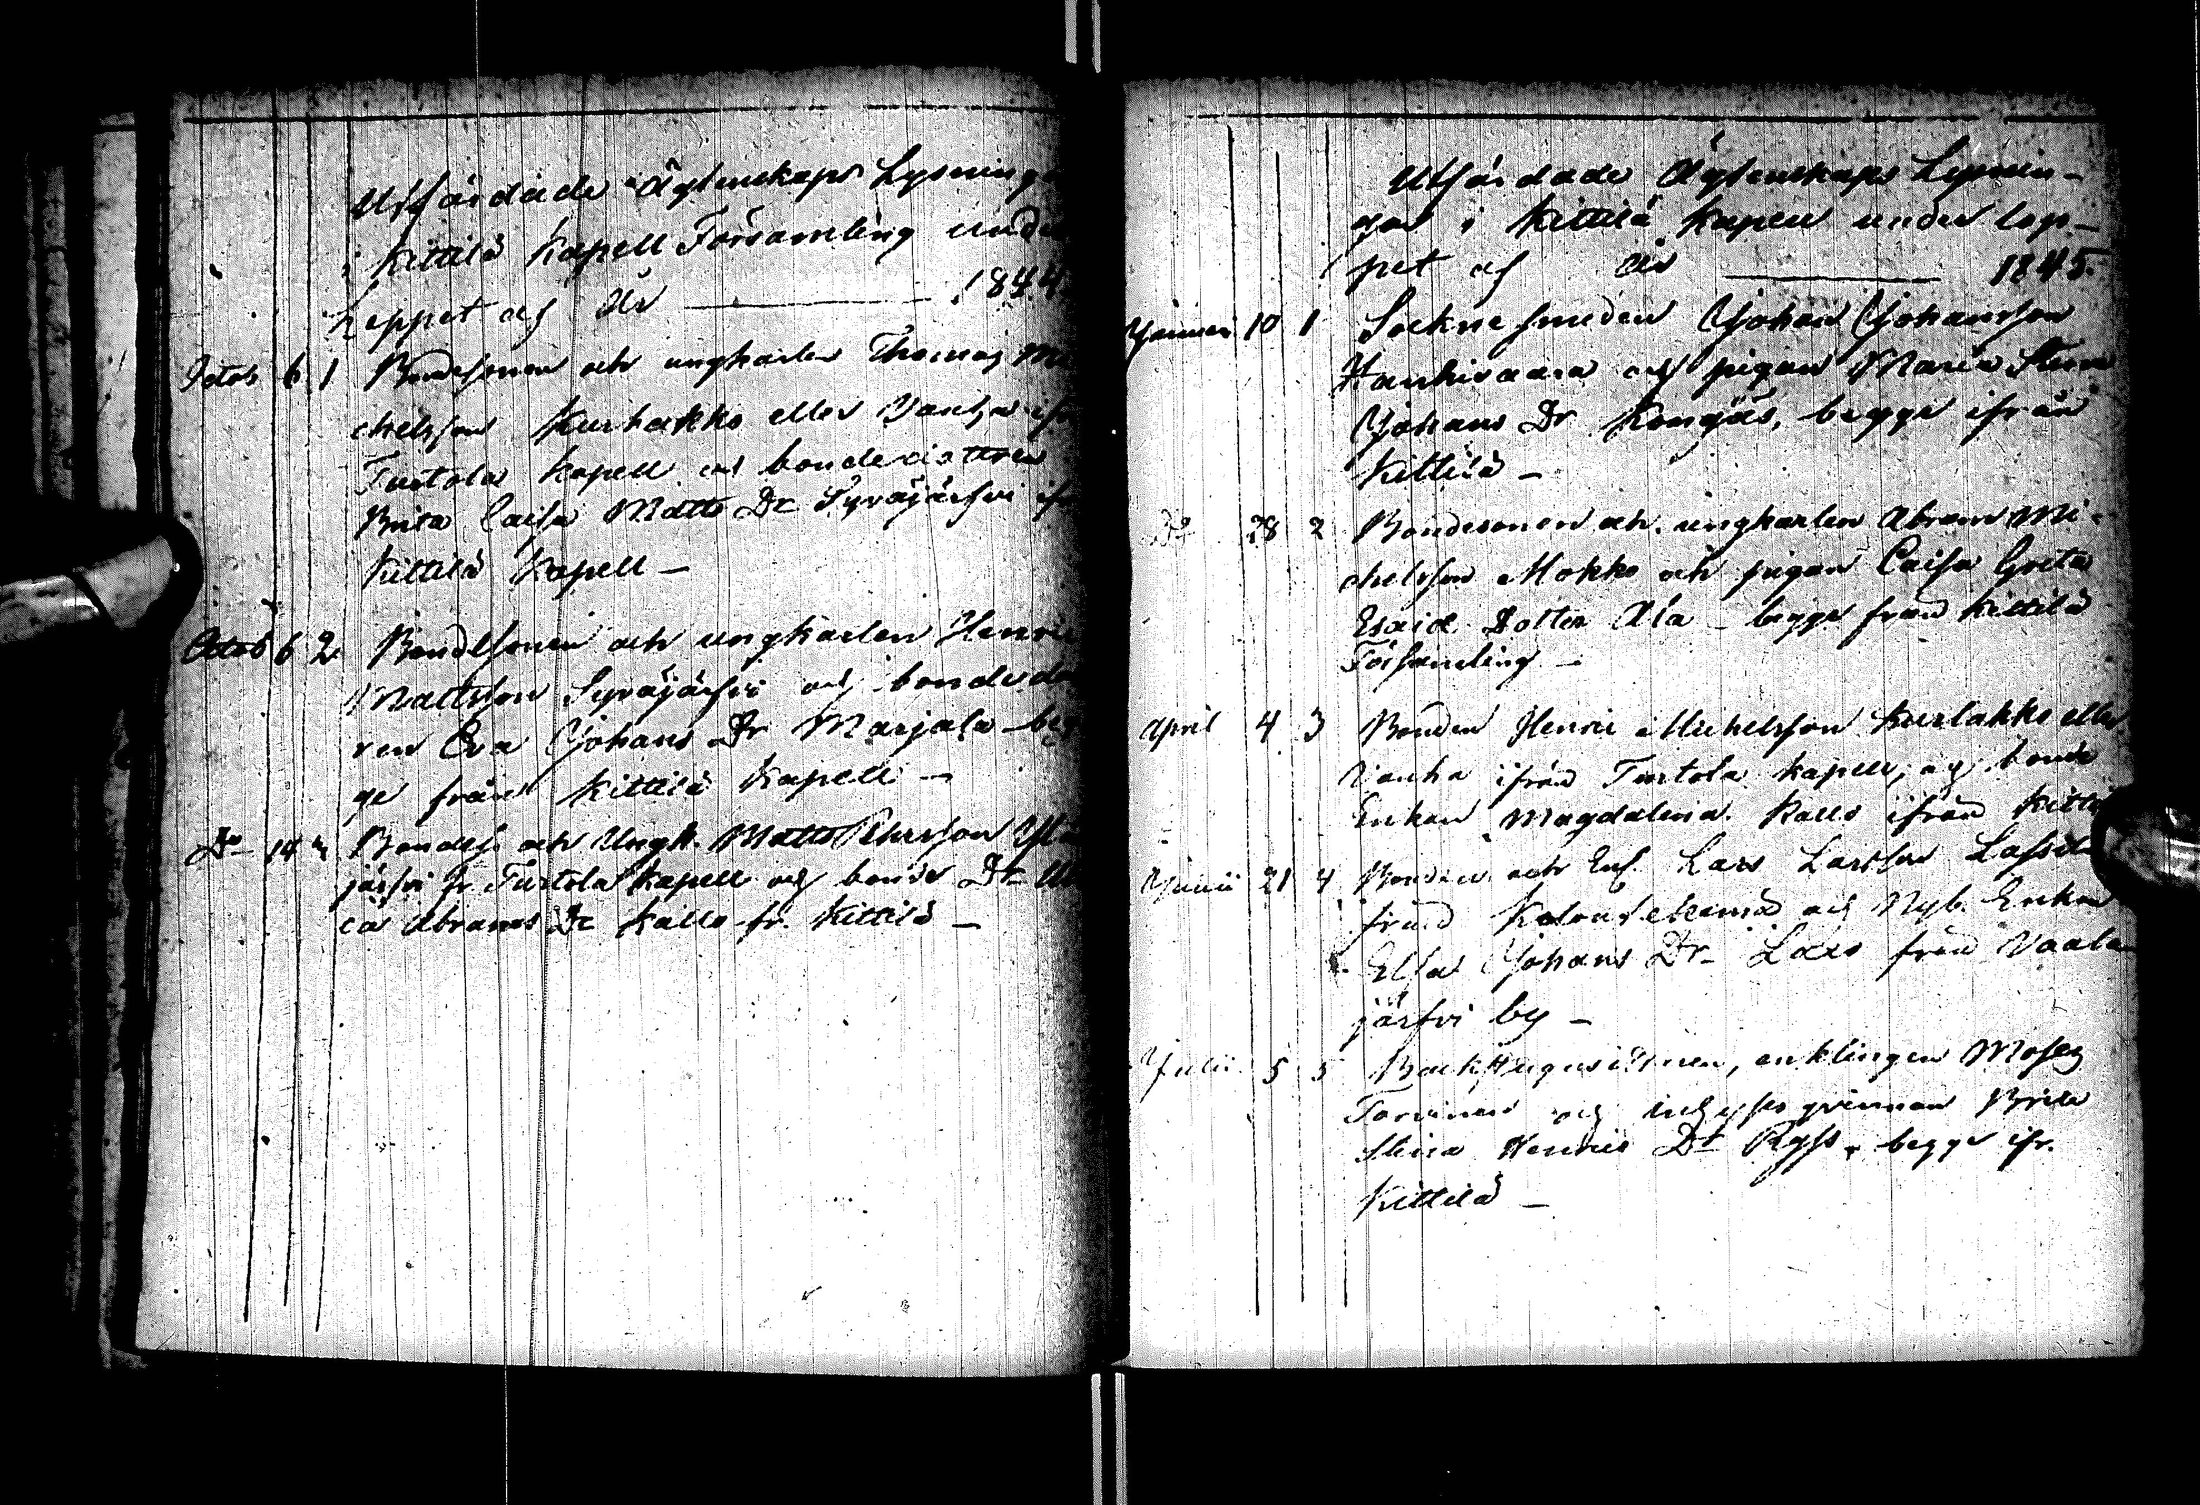 Utfärdade Ägtenskaps Lysninga
i Kittilä Kapell Församling unde
loppet af År ——— 1844.
Octob 6 1 Bondesonen och ungkarlen Thomas Mi
chelsson Kurtakko eller Vanha ifr
Turtola Kapell och bondedottren
Brita Caisa Matts Dr Syväjärfvi ifr
Kittilä Kapell —
Octob 6 2 Bondesonen och ungkarlen Henric
Mattsson Syväjärfvi och bondedo
ren Eva Johans Dr Marjala beg
ge från Kittilä Kapell —
Do 14 3 Bondes. och Ungk. Matts Pehrsson
järfvi fr. Turtola Kapell och bonde Dr
ca Abrams Dr Kallo fr. Kittilä —
Utfärdade Ägtenskaps Lysnin-
gar i Kittilä Kapell under lop-
pet af år ——— 1845.
Januari 10 1 Sockne smeden Johan Johansson
Hankivaara och pigan Maria Stina
Johans Dr Kongäs, begge ifrån
Kittilä —
Do 28 2 Bondesonen och ungkarlen Abram Mi-
chelsson Mokko och pigan Caisa Greta
Esaiæ Dotter Ala — begge från Kittilä
Församling —
April 4 3 Bonden Henric Michelsson Kurtakko eller
Vanha ifrån Turtola Kapell, och bonde
Enkan Magdalena Kallo ifrån Kittil
Junii 21 4 Bonden och Enk. Lars Larsson Lassila
från och Nyb. Enkan
Elsa Johans Dr Lars från Vaala
järfvi by —
Julii 5 5 enklingen Moses
Torvinen och inhyses qvinnan Brita
Stina Henrics Dr Ryss, begge ifr.
Kittilä —